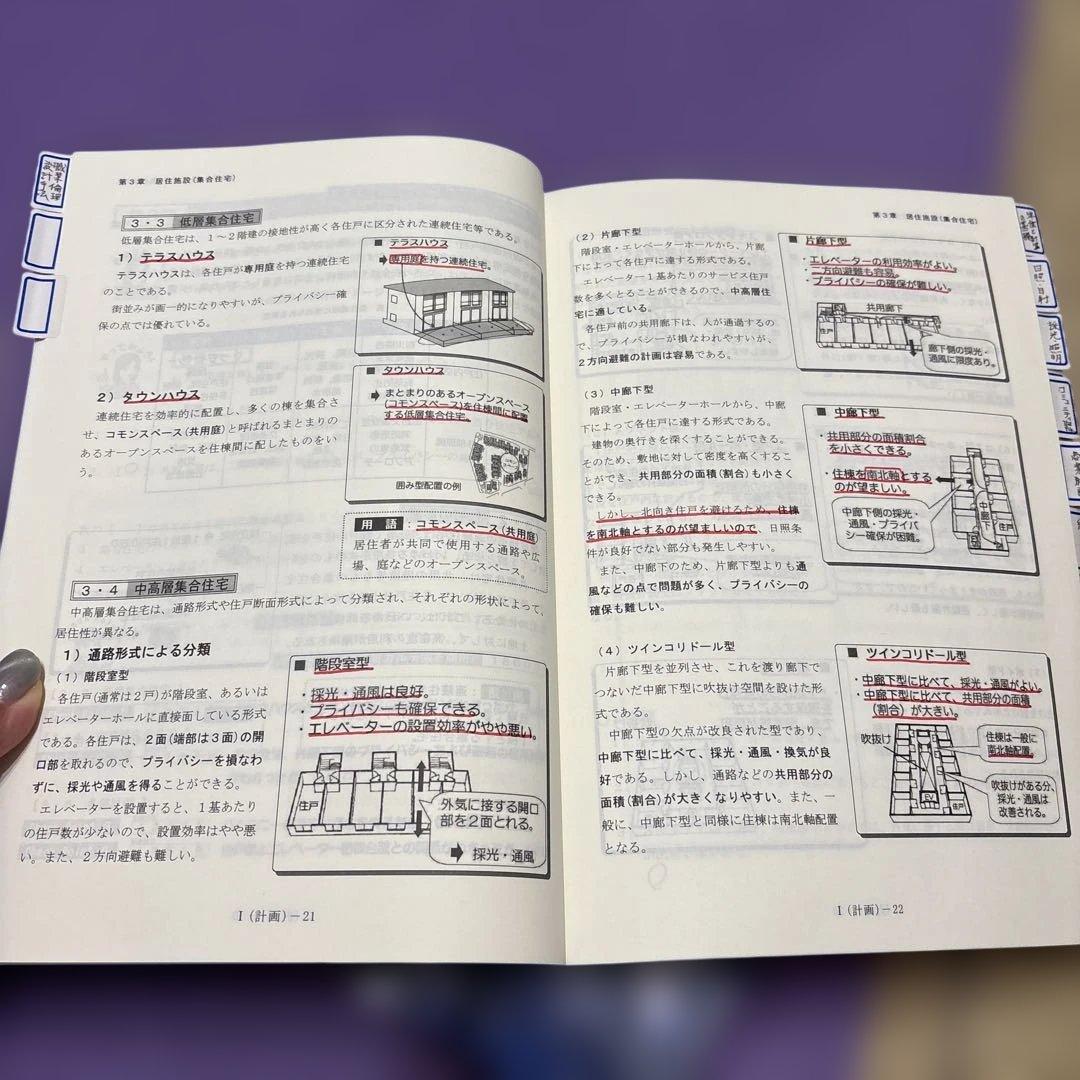 第3章 居住施設(集合住宅)
3・3 低層集合住宅
低層集合住宅は、1～2階建の接地性が高く各住戸に区分された連続住宅等である。
1)テラスハウス
テラスハウスは、各住戸が専用庭を持つ連続住宅
のことである。
街並みが画一的になりやすいが、プライバシー確
保の点では優れている。
■ テラスハウス
➡専用庭を持つ連続住宅。
2)タウンハウス
連続住宅を効率的に配置し、多くの棟を集合さ
せ、コモンスペース(共用庭)と呼ばれるまとまりの
あるオープンスペースを住棟間に配したものをい
う。
■ タウンハウス
➡ まとまりのあるオープンスペース
(コモンスペース)を住棟間に配置
する低層集合住宅。
囲み型配置の例
用語:コモンスペース(共用庭)
居住者が共同で使用する通路や広
場、庭などのオープンスペース。
3・4 中高層集合住宅
中高層集合住宅は、通路形式や住戸断面形式によって分類され、それぞれの形状によって、
居住性が異なる。
1)通路形式による分類
(1)階段室型
各住戸(通常は2戸)が階段室、あるいは
エレベーターホールに直接面している形式
である。各住戸は、2面(端部は3面)の開
口部を取れるので、プライバシーを損なわ
ずに、採光や通風を得ることができる。
エレベーターを設置すると、1基あたり
の住戸数が少ないので、設置効率はやや悪
い。また、2方向避難も難しい。
■ 階段室型
・採光・通風は良好。
・プライバシーも確保できる。
・エレベーターの設置効率がやや悪い。
住戸
外気に接する開口
部を2面とれる。
➡ 採光・通風
I(計画)－21
第3章 居住施設(集合住宅)
(2)片廊下型
階段室・エレベーターホールから、片廊
下によって各住戸に達する形式である。
エレベーター1基あたりのサービス住戸
数を多くとることができるので、中高層住
宅に適している。
各住戸前の共用廊下は、人が通過するの
で、プライバシーが損なわれやすいが、
2方向避難の計画は容易である。
■ 片廊下型
・エレベーターの利用効率がよい。
・二方向避難も容易。
・プライバシーの確保が難しい。
共用廊下
住戸
廊下側の採光・
通風に限度あり。
(3)中廊下型
階段室・エレベーターホールから、中廊下
によって各住戸に達する形式である。
建物の奥行きを深くすることができる。
そのため、敷地に対して密度を高くするこ
とができ、共用部分の面積(割合)も小さく
できる。
しかし、北向き住戸を避けるため、住棟
を南北軸とするのが望ましいので、日照条
件が良好でない部分も発生しやすい。
また、中廊下のため、片廊下型よりも通
風などの点で問題が多く、プライバシーの
確保も難しい。
■ 中廊下型
・共用部分の面積割合
を小さくできる。
・住棟を南北軸とする
のが望ましい。
中廊下側の採光・
通風・プライバ
シー確保が困難。
中廊下
住戸
(4)ツインコリドール型
片廊下型を並列させ、これを渡り廊下で
つないだ中廊下型に吹抜け空間を設けた形
式である。
中廊下型の欠点が改良された型であり、
中廊下型に比べて、採光・通風・換気が良
好である。しかし、通路などの共用部分の
面積(割合)が大きくなりやすい。また、一
般に、中廊下型と同様に住棟は南北軸配置
となる。
■ ツインコリドール型
・中廊下型に比べて、採光・通風がよい。
・中廊下型に比べて、共用部分の面積
(割合)が大きい。
吹抜け
住棟は一般に
南北軸配置。
EV
住戸
吹抜けがある分、
採光・通風は
改善される。
I(計画)－22
日照・日射
採光・照明